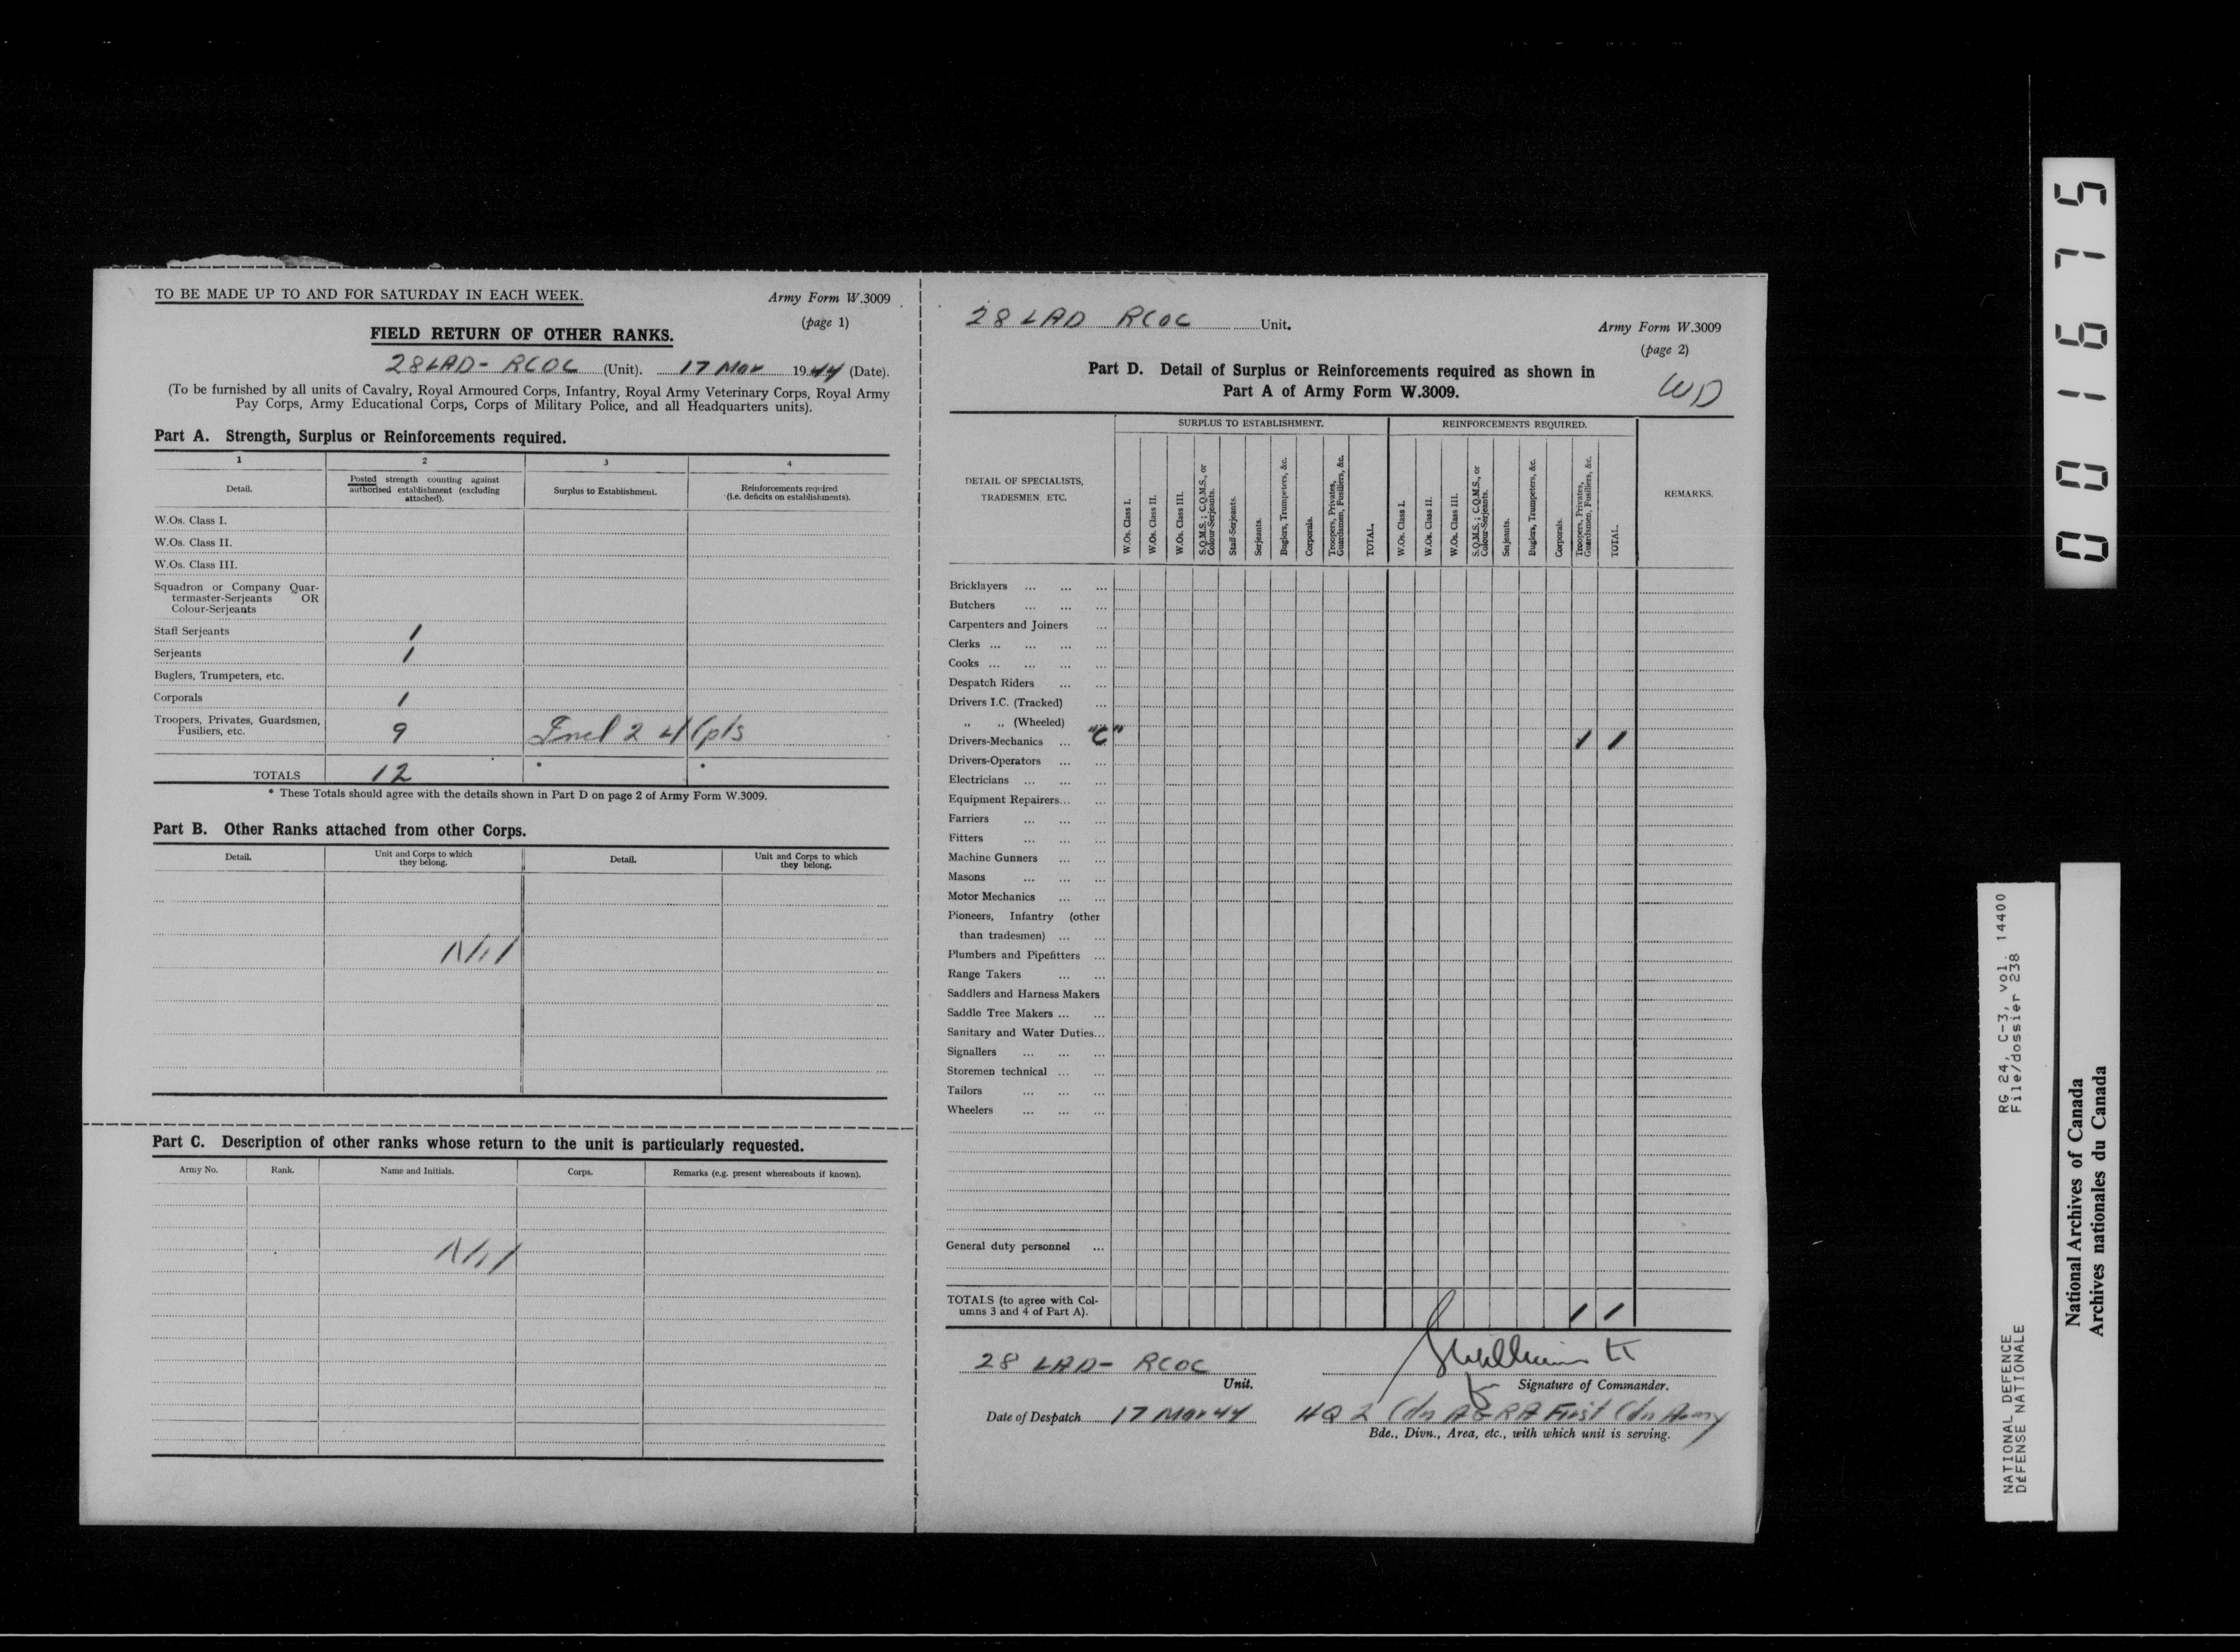 TO BE MADE UP TO AND FOR SATURDAY IN EACH WEEK.
Army Form W.3009
(page 1)
FIELD RETURN OF OTHER RANKS.
28 LAD - RCOC (Unit). 17 Mar 1944 (Date).
(To be furnished by all units of Cavalry, Royal Armoured Corps, Infantry, Royal Army Veterinary Corps, Royal Army
Pay Corps, Army Educational Corps, Corps of Military Police, and all Headquarters units).
Part A. Strength, Surplus or Reinforcements required.
1 2 3 4
Detail.
Posted strength counting against
authorised establishment (excluding
attached).
Surplus to Establishment.
Reinforcements required
(i.e. deficits on establishments).
W.Os. Class I.
W.Os. Class II.
W.Os. Class III.
Squadron or Company Quar-
termaster-Serjeants OR
Colour-Serjeants
Staff Serjeants 1
Serjeants 1
Buglers, Trumpeters, etc.
Corporals 1
Troopers, Privates, Guardsmen,
Fusiliers, etc. 9 Incl 2 Cpls
TOTALS 12 * *
* These Totals should agree with the details shown in Part D on page 2 of Army Form W.3009.
Part B. Other Ranks attached from other Corps.
Detail.
Unit and Corps to which
they belong.
Detail.
Unit and Corps to which
they belong.
Nil
Part C. Description of other ranks whose return to the unit is particularly requested.
Army No. Rank. Name and Initials. Corps. Remarks (e.g. present whereabouts if known).
Nil
28 LAD RCOC Unit.
Army Form W.3009
(page 2)
Part D. Detail of Surplus or Reinforcements required as shown in
Part A of Army Form W.3009.
WD
DETAIL OF SPECIALISTS,
TRADESMEN, ETC.
SURPLUS TO ESTABLISHMENT.
W.Os. Class I.
W.Os. Class II.
W.Os. Class III.
S.Q.M.S.; C.Q.M.S., or
Colour-Serjeants.
Staff-Serjeants.
Serjeants.
Buglers, Trumpeters, &c.
Corporals.
Troopers, Privates,
Guardsmen, Fusiliers, &c.
TOTAL.
REINFORCEMENTS REQUIRED.
W.Os. Class I.
W.Os. Class II.
W.Os. Class III.
S.Q.M.S.; C.Q.M.S., or
Colour-Serjeants.
Serjeants.
Buglers, Trumpeters, &c.
Corporals.
Troopers, Privates,
Guardsmen, Fusiliers, &c.
TOTAL.
REMARKS.
Bricklayers ... ... ...
Butchers ... ... ...
Carpenters and Joiners ...
Clerks ... ... ... ...
Cooks ... ... ... ...
Despatch Riders ... ...
Drivers I.C. (Tracked) ...
,, ,, (Wheeled)
Drivers-Mechanics ... "C" 1 1
Drivers-Operators ... ...
Electricians ... ... ...
Equipment Repairers... ...
Farriers ... ... ...
Fitters ... ... ...
Machine Gunners ... ...
Masons ... ... ...
Motor Mechanics ... ...
Pioneers, Infantry (other
than tradesmen) ... ...
Plumbers and Pipefitters ...
Range Takers ... ...
Saddlers and Harness Makers
Saddle Tree Makers ... ...
Sanitary and Water Duties...
Signallers ... ... ...
Storemen technical ... ...
Tailors ... ... ...
Wheelers ... ... ...
General duty personnel ...
TOTALS (to agree with Col-
umns 3 and 4 of Part A). 1 1
28 LAD - RCOC
Unit.
Signature of Commander.
Date of Despatch 17 Mar 44
HQ 2 Cdn AGRA First Cdn Army
Bde., Divn., Area, etc., with which unit is serving.
0001675
RG 24, C-3, vol. 14400
File/dossier 238
NATIONAL DEFENCE
DÉFENSE NATIONALE
National Archives of Canada
Archives nationales du Canada